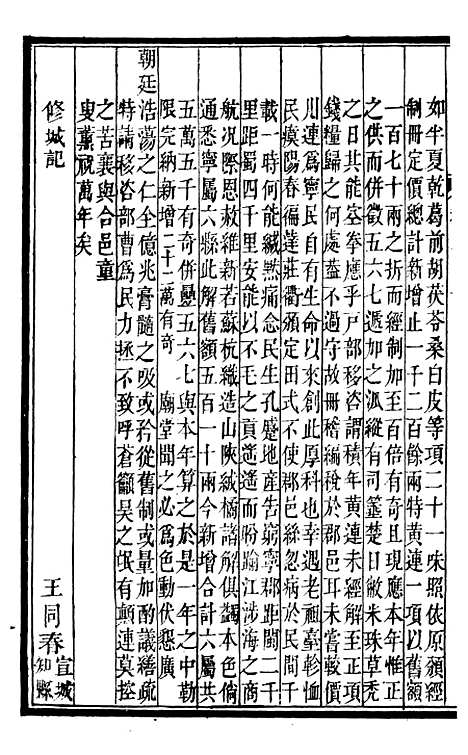 如半夏乾葛前胡茯苓桑白皮等項二十一味照依原頒經
制冊定價總計新增止一千二百餘兩特黃連一項以舊額
一百七十兩之折而經制加至百倍有奇且現應本年惟正
之供而併徵五六七遞加之派縱有司箠楚日敝米珠草禿
之日其能空拳應乎戸部移咨謂積年黃連未經解王正項
錢糧歸之何處蓋不過守故冊稽編稅於郡邑耳未嘗較價
川連爲寧民自有生命以來創此厚科也幸遇老祖臺軫恤
民瘼陽春徧蓬莊衢頒定田式不使鄰邑絲忽病於 一千
載一時何能緘黙痛念民生孔蹙地產告窮寧郡距閩二千
里距蜀四千里安能以不毛之貢遙遙而盼踰江涉海之商
航況際恩赦維新若蘇杭織造山陝絨橘諸解俱蠲本色倘
通悉寧屬六縣此解舊額五百一十兩今新增合計六屬共
五萬五千有奇併疊五六七與本年算之於是一年之中勒
限完納新增二十二萬有奇 廟堂聞之必爲色動伏懇廣
朝廷浩蕩之仁全億兆膏髓之吸或矜從舊制或量酌議繕疏
特請移咨部曹爲民力拯不致呼蒼籲昊之氓有顛連莫控
之苦襄與合邑童
叟薰祝萬年矣
修城記 王同春宣城知縣